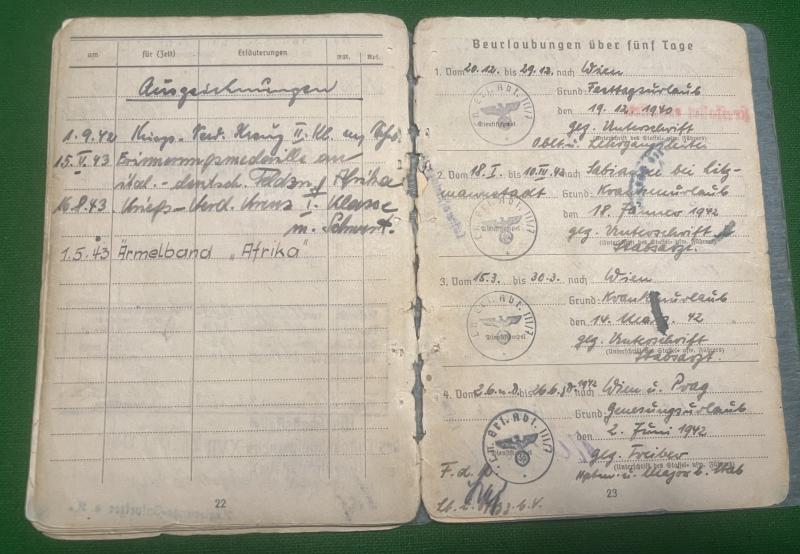 am für (Zeit) Erläuterungen
Auszeichnungen
1.9.42 Kriegs-Verd. Kreuz II. Kl. m/Schw.
15.V.43 Erinnerungsmedaille an
ital.-deutsch. Feldzug Afrika
16.8.43 Kriegs-Verd. Kreuz I. Klasse
m. Schwert.
1.5.43 Ärmelband „Afrika"
22
Beurlaubungen über fünf Tage
1. Vom 20.12. bis 29.12. nach Wien
Grund: Festtagsurlaub
den 19.12.1940
gez. Unterschrift
(Unterschrift des Staffel- usw. Führers)
Oblt. u. Lehrgangsleiter
Dienststempel
2. Vom 18.I. bis 10.III.42 nach bei Litz-
mannstadt Grund: Krankenurlaub
18. Jänner 1942
gez. Unterschrift
(Unterschrift des Staffel- usw. Führers)
Stabsarzt.
Dienststempel
3. Vom 15.3. bis 30.3. nach Wien
Grund: Krankenurlaub
den 14. März. 42
gez. Unterschrift
(Unterschrift des Staffel- usw. Führers)
Stabsarzt.
Ln. Ers. Abt. III/7
Dienststempel
4. Vom 2.6. bis 26.6. 1942 nach Wien u. Prag
Grund: Genesungsurlaub
den 2. Juni 1942
gez.
(Unterschrift des Staffel- usw. Führers)
Major b. Stab
Ln. Ers. Abt. III/7
F. d. R.
23